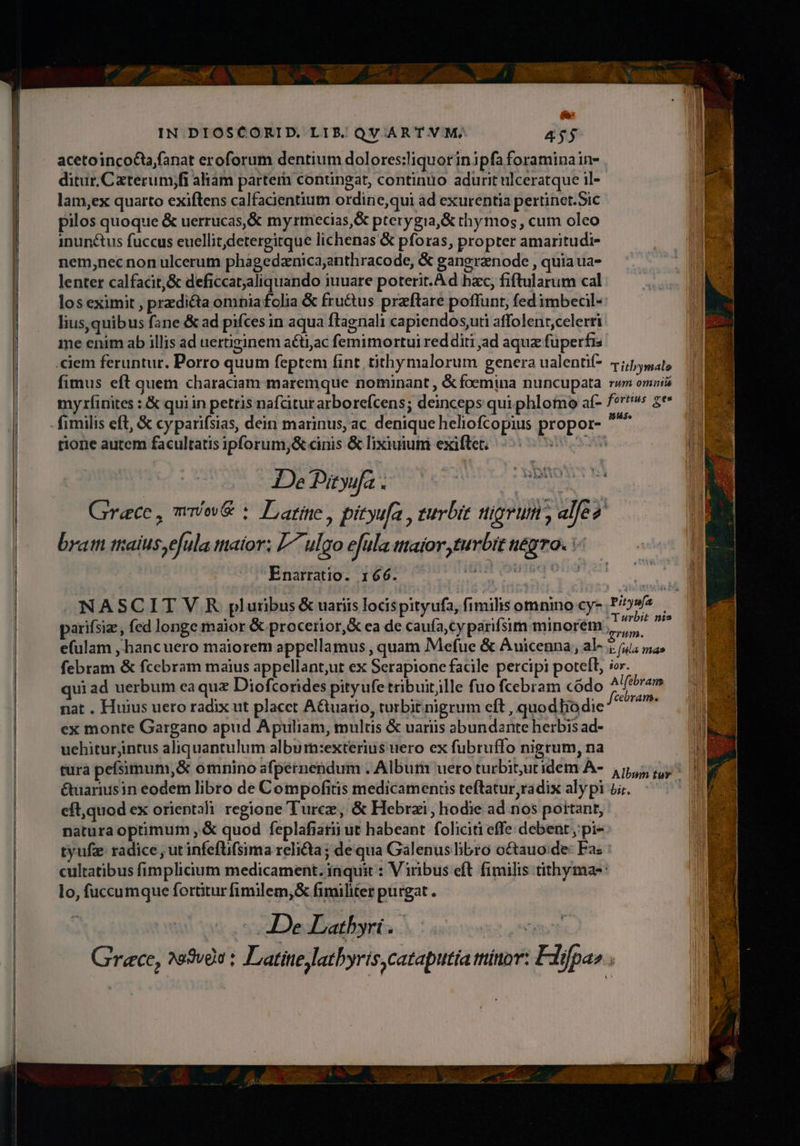 IN DIOSCORID. LIB. QVARTVM. 455
acetoincocta,ſanat eroſorum dentium dolores:liquor in ipſa foramina in-
ditur. Cæterum,ſi aliam partem contingat, continuo adurit ulceratque il-
lam,ex quarto exiſtens calfacientium ordine,qui ad exurentia pertinet. Sic
pilos quoque & uerrucas,& myrmecias,& pterygia,& thymos, cum oleo
inunctus ſuccus euellit,detergitque lichenas & pſoras, propter amaritudi-
nem,nec non ulcerum phagedænica,anthracode, & gangrænode, quia ua-
lenter calfacit,& deſiccat,aliquando iuuare poterit. Ad hæc, fiſtularum cal
los eximit, prædicta omnia folia & fructus præſtare poſſunt, ſed imbecil-
lius,quibus ſane & ad piſces in aqua ſtagnali capiendos,uti aſſolent,celerri
me enim ab illis ad uertiginem acti,ac ſemimortui redditi,ad aquæ ſuperfi-
ciem feruntur. Porro quum ſeptem ſint tithymalorum genera ualentiſ-
ſimus eſt quem characiam maremque nominant, & fœmina nuncupata
myrſinites: & qui in petris naſcitur arboreſcens; deinceps qui phlomo aſ-
ſimilis eſt, & cypariſsias, dein marinus, ac denique helioſcopius propor-
tione autem facultatis ipſorum,& cinis & lixiuium exiſtet.
Tithymalo
rum omniũ
fortius ge-
nus.
De Pityuſa.
Græce, πιτύουσα: Latine, pityuſa, turbit nigrum, alſe-
bram maius,eſula maior: Vulgo eſula maior,turbit negro.
Enarratio. 166.
NASCITVR pluribus & uariis locis pityuſa, ſimilis omnino cy-
pariſsiæ, ſed longe maior & procerior,& ea de cauſa,cypariſsim minorem
eſulam, hanc uero maiorem appellamus, quam Meſue & Auicenna, al-
ſebram & ſcebram maius appellant,ut ex Serapione facile percipi poteſt,
qui ad uerbum ea quæ Dioſcorides pityuſe tribuit,ille ſuo ſcebram cõdo
nat. Huius uero radix ut placet Actuario, turbit nigrum eſt, quod hodie
ex monte Gargano apud Apuliam, multis & uariis abundante herbis ad-
uehitur,intus aliquantulum album:exterius uero ex ſubruffo nigrum, na
tura peſsimum,& omnino aſpernendum. Album uero turbit,ut idem A-
ctuarius in eodem libro de Compoſitis medicamentis teſtatur,radix alypi
eſt,quod ex orientali regione Turcæ, & Hebræi, hodie ad nos portant,
natura optimum, & quod ſeplaſiarii ut habeant ſoliciti eſſe debent, pi-
tyuſæ radice, ut infeſtiſsima relicta; de qua Galenus libro octauo de Fa-
cultatibus ſimplicium medicament. inquit: Viribus eſt ſimilis tithyma-
lo, ſuccumque fortitur ſimilem,& ſimiliter purgat.
Pityuſa
Turbit ni-
grum.
Eſula ma-
ior.
Alſebram
ſcebram.
Album tur
bit.
De Lathyri.
Græce, λαθυρὶς: Latine,lathyris,cataputia minor: Hiſpa-